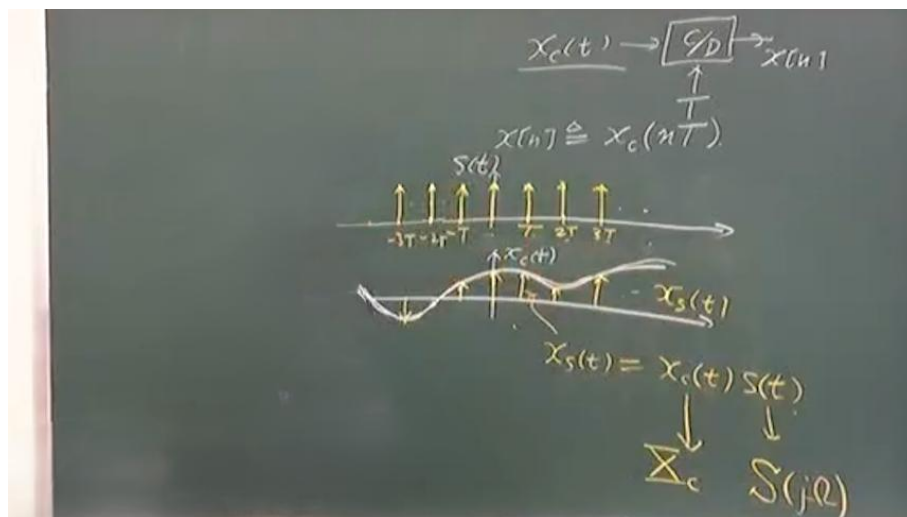 x_c(t) → C/D → x[n]
T
x[n] ≜ x_c(nT)
s(t)
-3T -2T -T T 2T 3T
x_c(t)
x_s(t)
x_s(t) = x_c(t) s(t)
X_c S(jΩ)